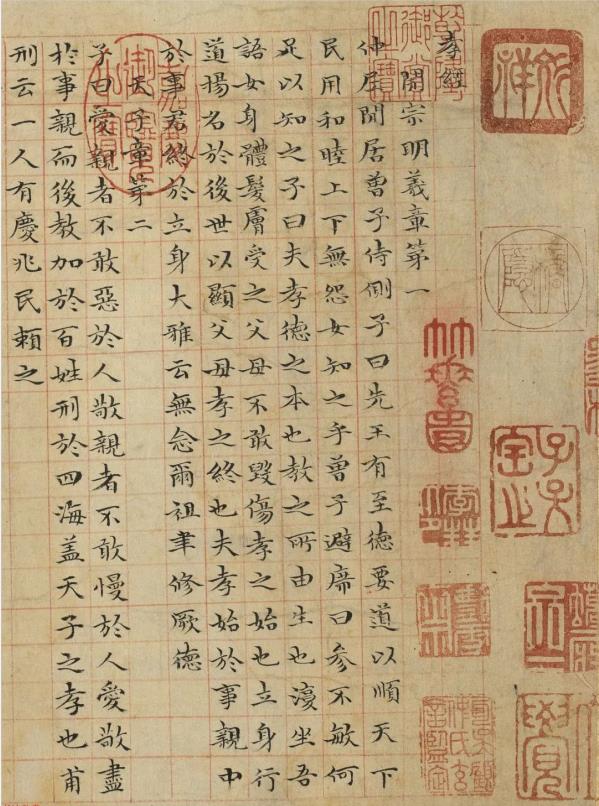 孝經
開宗明義章第一
仲尼閒居曾子侍側子曰先王有至德要道以順天下
民用和睦上下無怨女知之乎曾子避席曰參不敏何
足以知之子曰夫孝德之本也教之所由生也復坐吾
語女身體髮膚受之父母不敢毀傷孝之始也立身行
道揚名於後世以顯父母孝之終也夫孝始於事親中
於事君終於立身大雅云無念爾祖聿修厥德
天子章第二
子曰愛親者不敢惡於人敬親者不敢慢於人愛敬盡
於事親而後教加於百姓刑於四海盖天子之孝也甫
刑云一人有慶兆民賴之
乾隆御覽之寶
嘉慶御覽之寶